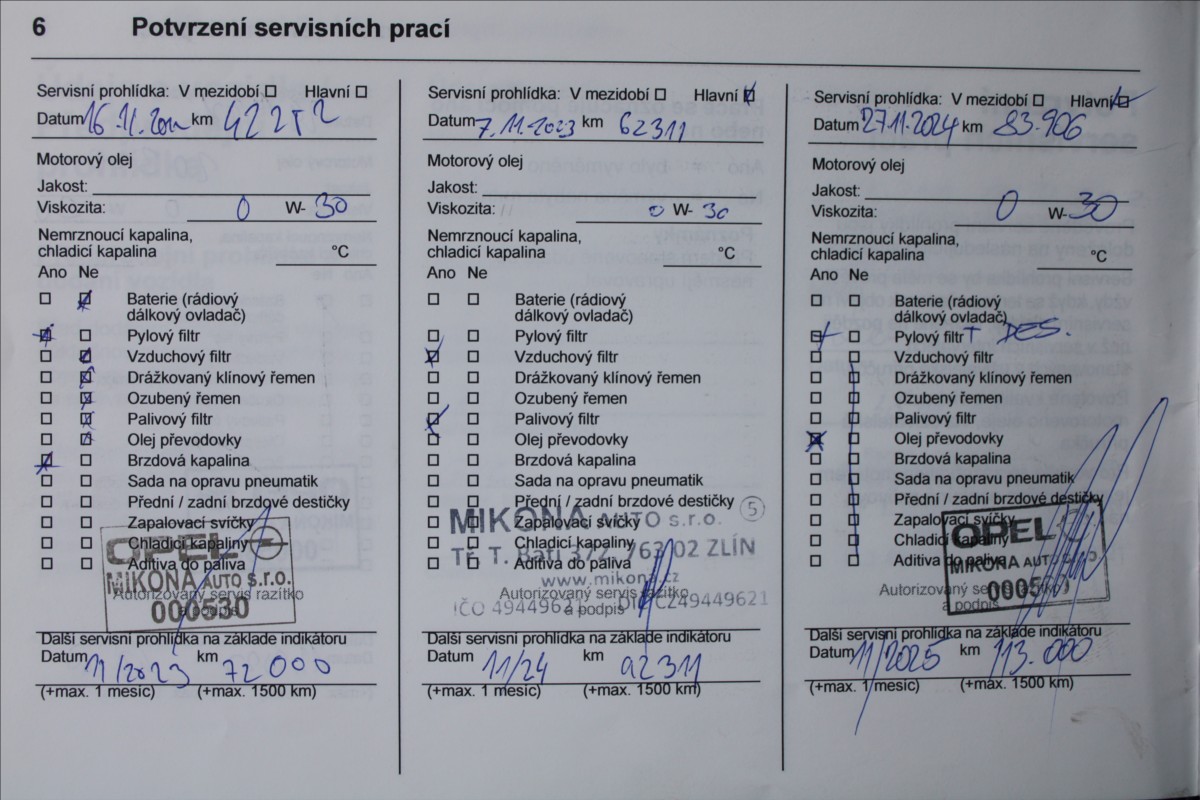 6 Potvrzení servisních prací
Servisní prohlídka: V mezidobí Hlavní
Datum 16.11.2022 km 42252
Motorový olej
Jakost:
Viskozita: 0 W- 30
Nemrznoucí kapalina,
chladicí kapalina °C
Ano Ne
Baterie (rádiový
dálkový ovladač)
Pylový filtr
Vzduchový filtr
Drážkovaný klínový řemen
Ozubený řemen
Palivový filtr
Olej převodovky
Brzdová kapalina
Sada na opravu pneumatik
Přední / zadní brzdové destičky
Zapalovací svíčky
Chladicí kapaliny
Aditiva do paliva
OPEL
MIKONA AUTO s.r.o.
Autorizovaný servis razítko
a podpis
000530
Další servisní prohlídka na základe indikátoru
Datum 11/2023 km 72000
(+max. 1 mesíc) (+max. 1500 km)
Servisní prohlídka: V mezidobí Hlavní
Datum 7.11.2023 km 62311
Motorový olej
Jakost:
Viskozita: 0 W- 30
Nemrznoucí kapalina,
chladicí kapalina °C
Ano Ne
Baterie (rádiový
dálkový ovladač)
Pylový filtr
Vzduchový filtr
Drážkovaný klínový řemen
Ozubený řemen
Palivový filtr
Olej převodovky
Brzdová kapalina
Sada na opravu pneumatik
Přední / zadní brzdové destičky
Zapalovací svíčky
Chladicí kapaliny
Aditiva do paliva
MIKONA AUTO s.r.o. 5
Tř. T. Bati 372, 763 02 ZLÍN
www.mikona.cz
Autorizovaný servis razítko
a podpis
IČO 49449621 DIČ CZ49449621
Další servisní prohlídka na základe indikátoru
Datum 11/24 km 92311
(+max. 1 mesíc) (+max. 1500 km)
Servisní prohlídka: V mezidobí Hlavní
Datum 27.11.2024 km 83.906
Motorový olej
Jakost:
Viskozita: 0 W- 30
Nemrznoucí kapalina,
chladicí kapalina °C
Ano Ne
Baterie (rádiový
dálkový ovladač)
Pylový filtr + DES.
Vzduchový filtr
Drážkovaný klínový řemen
Ozubený řemen
Palivový filtr
Olej převodovky
Brzdová kapalina
Sada na opravu pneumatik
Přední / zadní brzdové destičky
Zapalovací svíčky
Chladicí kapaliny
Aditiva do paliva
OPEL
MIKONA AUTO s.r.o.
Autorizovaný servis razítko
a podpis
000530
Další servisní prohlídka na základe indikátoru
Datum 11/2025 km 113.000
(+max. 1 mesíc) (+max. 1500 km)